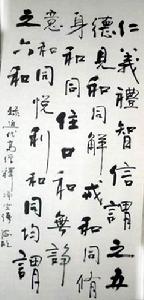 仁義禮智信謂之五
德見和同解戒和同脩
身和同住口和無諍
意和同悅利和同均謂
之六和
錄近代高僧釋淨空